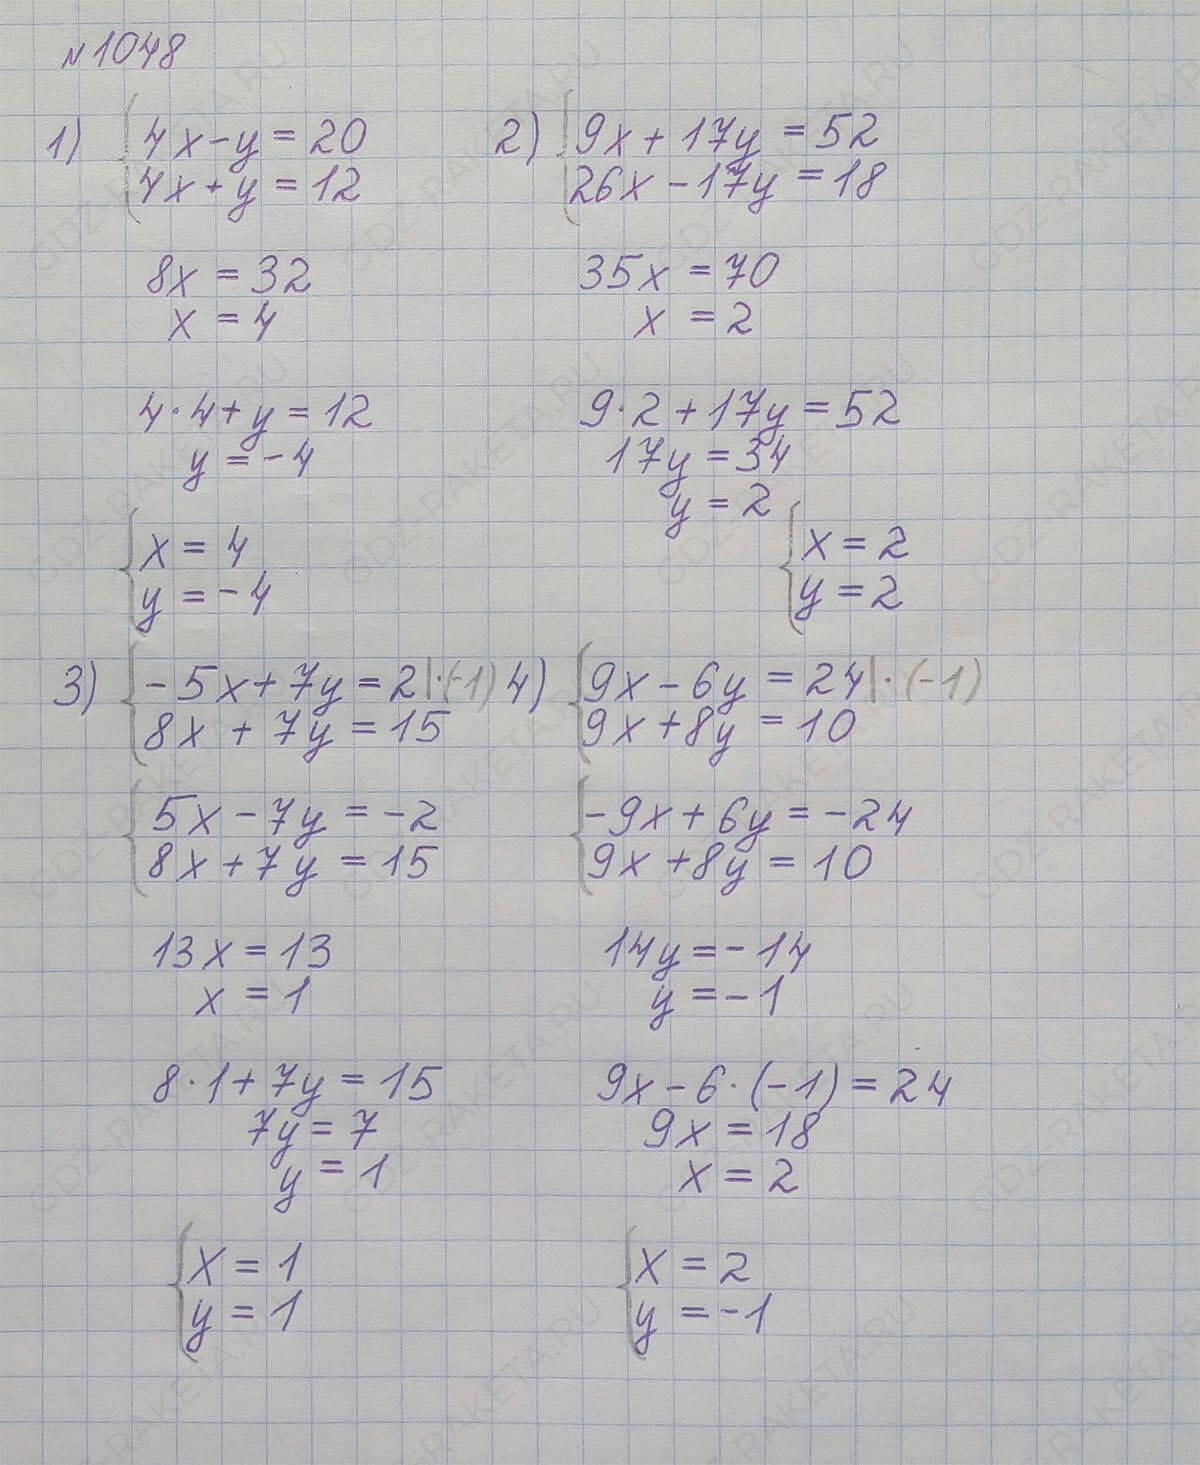 №1048
1) 4x-y=20
4x+y=12
8x=32
x=4
4·4+y=12
y=-4
x=4
y=-4
2) 9x+17y=52
26x-17y=18
35x=70
x=2
9·2+17y=52
17y=34
y=2
x=2
y=2
3) -5x+7y=2|·(-1)
8x+7y=15
5x-7y=-2
8x+7y=15
13x=13
x=1
8·1+7y=15
7y=7
y=1
x=1
y=1
4) 9x-6y=24|·(-1)
9x+8y=10
-9x+6y=-24
9x+8y=10
14y=-14
y=-1
9x-6·(-1)=24
9x=18
x=2
x=2
y=-1
GDZ-RAKETA.RU